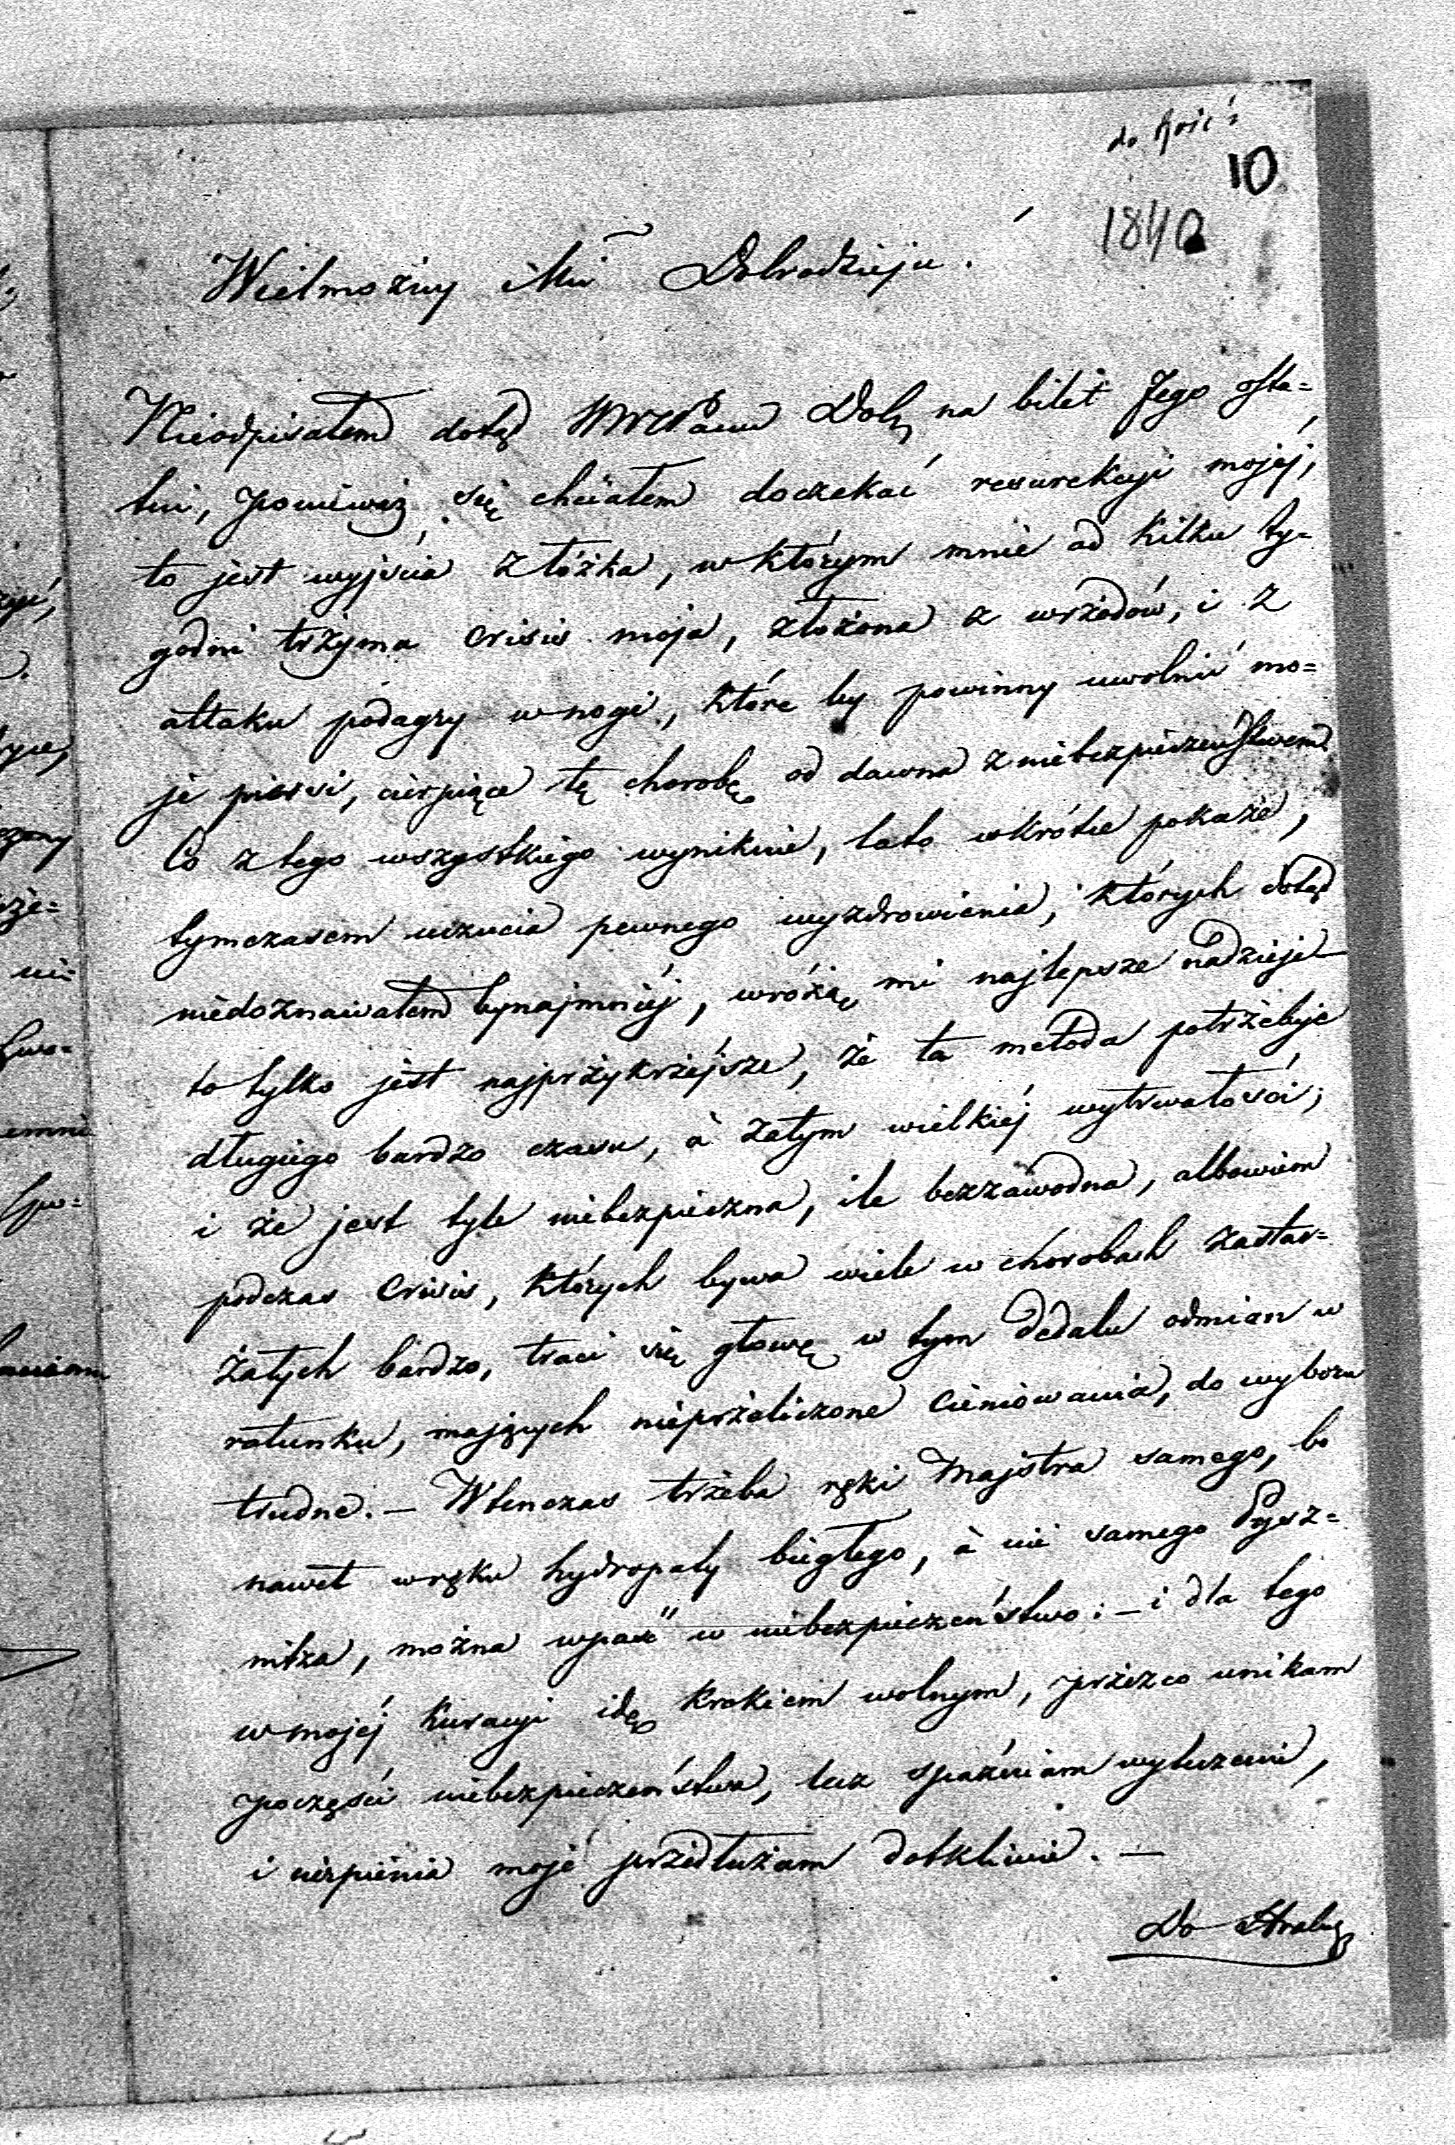 10
1840
Wielmożny Mci Dobrodzieju.
Nieodpisałem dotąd Panu Dob. na bilet Jego osta=
tni, ponieważ się chciałem doczekać resurekcyi mojéj,
to jest wyjścia z łóżka, w którym mnie od kilku ty=
godni trzyma crisis moja, złożona z wrzodów, i z
attaku podagry w nogi, które by powinny uwolnić mo=
je piersi, cierpiące tę chorobę od dawna z niebezpieczeństwem.
Co z tego wszystkiego wyniknie, lato wkrótce pokaże,
tymczasem uczucia pewnego wyzdrowienia, których dotąd
niedoznawałem bynajmniéj, wróżą mi najlepsze nadzieje
to tylko jest najprzykrzejsze, że ta metoda potrzebuje
długiego bardzo czasu, à zatym wielkiéj wytrwałości;
i że jest tyle niebezpieczna, ile bezzawodna, albowiem
podczas crisis, których bywa wiele w chorobach zastar=
żałych bardzo, traci się głowę w tym dedalu odmian w
ratunku, mających nieprzeliczone cieniowania, do wyboru
trudne. — Wtenczas trzeba ręki Majstra samego, bo
nawet w ręku hydropaty biegłego, à nie samego Prysz=
nitza, można wpaść w niebezpieczeństwo: — i dla tego
w mojéj kuracyi idę krokiem wolnym, przezco unikam
poczęści niebezpieczeństwa, lecz spaźniam wyleczenie,
i cierpienia moje przedłużam dotkliwie. —